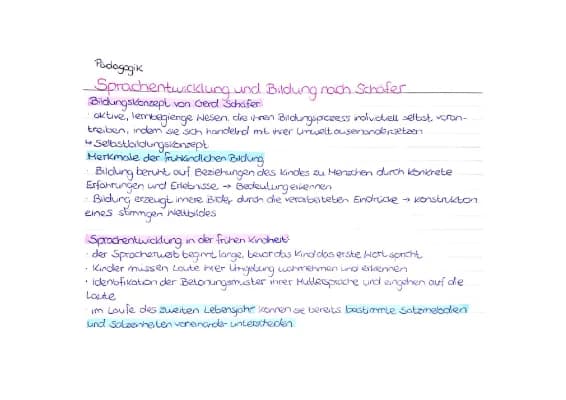 Pädagogik
Sprachentwicklung und Bildung nach Schäfer
Bildungskonzept von Gerd Schäfer
· aktive, lernbegierige Wesen, die ihren Bildungsprozess individuell selbst voran-
treiben, indem sie sich handelnd mit ihrer Umwelt auseinandersetzen
↳ Selbstbildungskonzept
Merkmale der frühkindlichen Bildung
· Bildung beruht auf Beziehungen des Kindes zu Menschen durch konkrete
Erfahrungen und Erlebnisse → Bedeutung erkennen
· Bildung erzeugt innere Bilder, durch die verarbeiteten Eindrücke → Konstruktion
eines stimmigen Weltbildes
Sprachentwicklung in der frühen Kindheit
· der Spracherwerb beginnt lange, bevor das Kind das erste Wort spricht
· Kinder müssen Laute ihrer Umgebung wahrnehmen und erkennen
· Identifikation der Betonungsmuster ihrer Muttersprache und eingehen auf die
Laute
· im Laufe des zweiten Lebensjahr können sie bereits bestimmte Satzmelodien
und Satzeinheiten voneinander unterscheiden